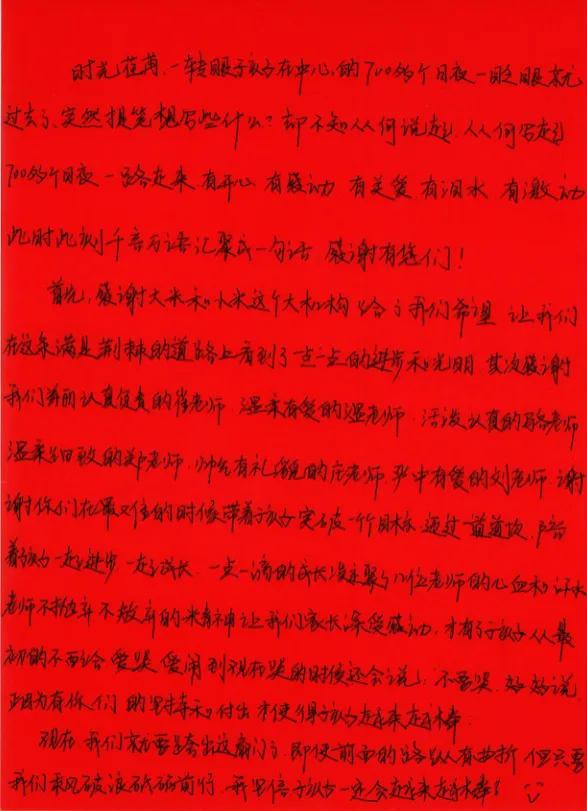 时光荏苒，一转眼孩子在中心的700多个日夜一眨眼就
过去了、突然提笔想写些什么？却不知从何说起，从何写起
700多个日夜一路走来 有开心 有感动 有关爱 有泪水 有激动
此时此刻千言万语汇聚成一句话 感谢有您们！
首先，感谢大米和小米这个大机构给了我们希望 让我们
在这条满是荆棘的道路上看到了一点一点的进步和光明 其次感谢
我们美丽认真负责的崔老师，温柔有爱的温老师，活泼认真的骆老师
温柔细致的郑老师，帅气有礼貌的庄老师，严中有爱的刘老师，谢
谢你们在最艰难的时候带着孩子突破一个个目标，迈过一道道坎，陪
着孩子一起进步一起成长，一点一滴的成长凝聚了几位老师的心血和汗水
老师不抛弃不放弃的精神让我们家长深受感动，才有了孩子从最
初的不配合 爱哭 爱闹到现在哭的时候还会说：不要哭，好好说
正因为有你们的坚持和付出才使得孩子越来越棒
现在，我们就要跨出这扇门了，即使前面的路纵有曲折 但只要
我们乘风破浪砥砺前行，我坚信孩子一定会越来越棒！